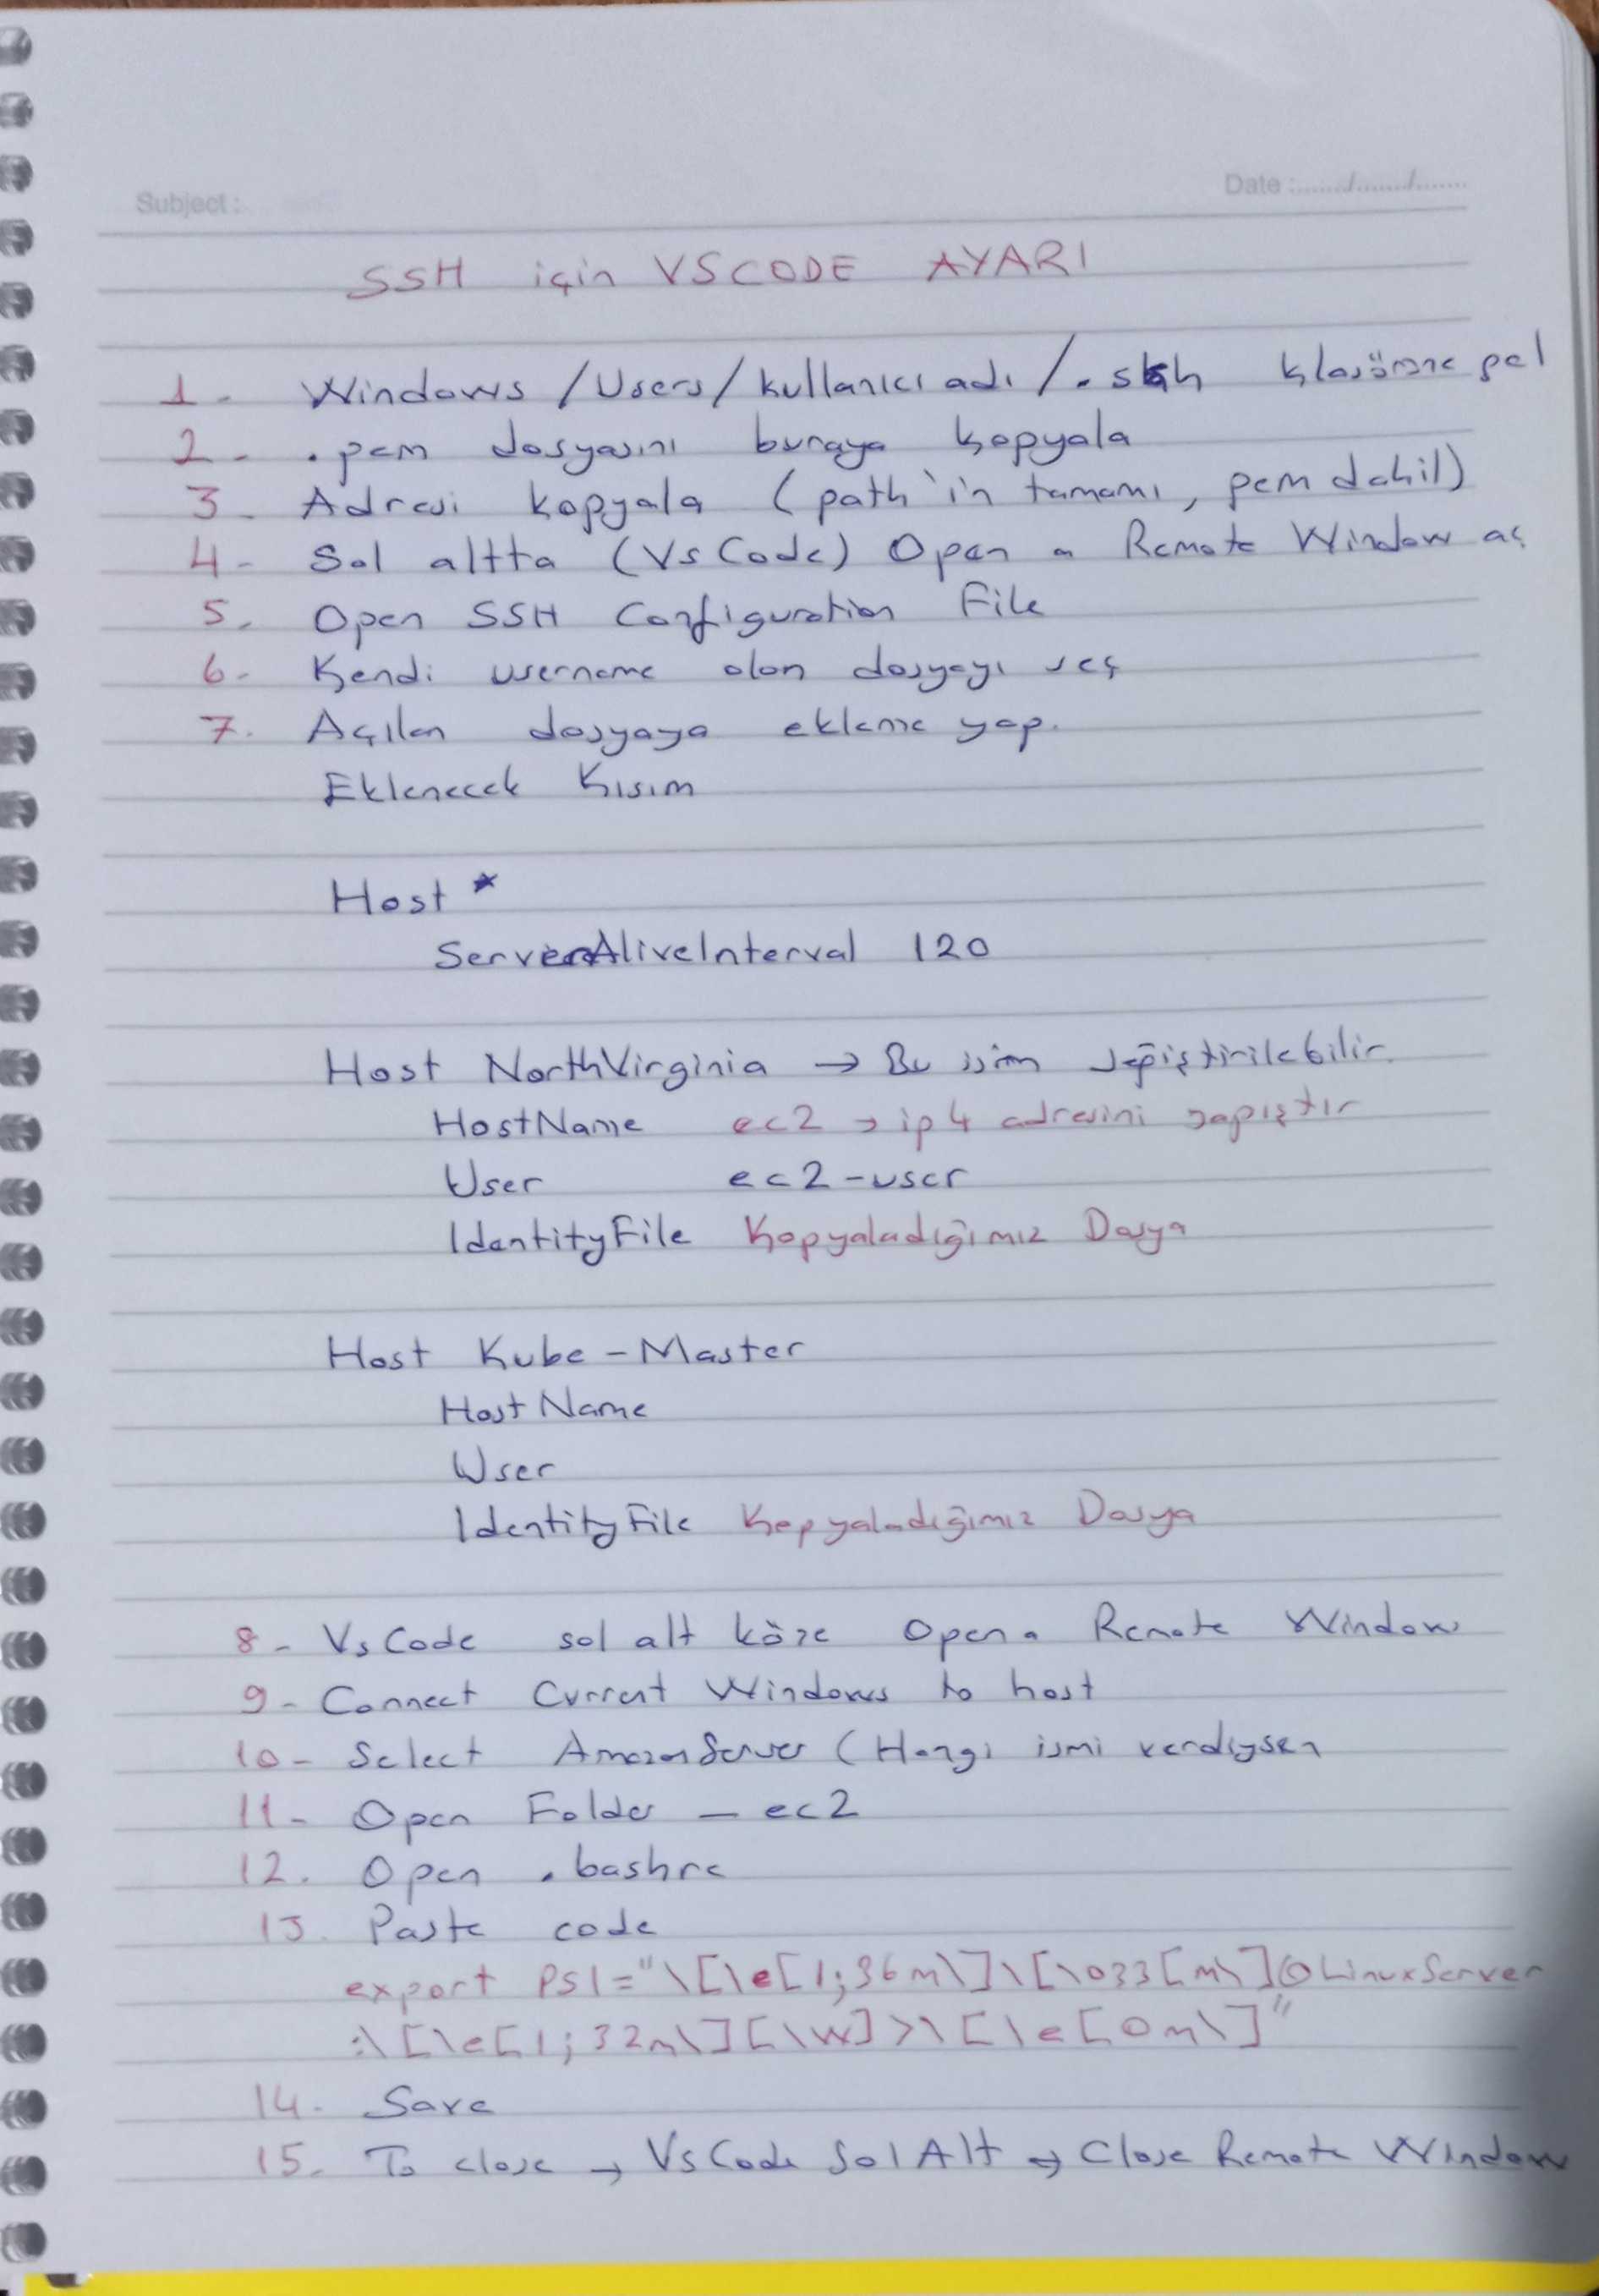 Subject :
Date :......./......./.......
SSH için VSCODE AYARI
1- Windows /Users/kullanıcı adı /.ssh klasörüne gel
2- .pem dosyasını buraya kopyala
3- Adresi kopyala (path'in tamamı, pem dahil)
4- Sol altta (Vs Code) Open a Remote Window aç
5. Open SSH Configuration File
6- Kendi username olan dosyayı seç
7. Açılan dosyaya ekleme yap.
Eklenecek Kısım
Host *
ServerAliveInterval 120
Host NorthVirginia → Bu isim değiştirilebilir.
HostName ec2 → ip4 adresini yapıştır
User ec2-user
IdentityFile Kopyaladığımız Dosya
Host Kube-Master
HostName
User
IdentityFile Kopyaladığımız Dosya
8- Vs Code sol alt köşe Open a Remote Window
9- Connect Current Windows to host
10- Select AmazonServer (Hangi ismi verdiysen
11- Open Folder - ec2
12. Open .bashrc
13. Paste code
export PS1="\[\e[1;36m\]\[\033[m\]@LinuxServer
:\[\e[1;32m\][\w]>\[\e[0m\]"
14. Save
15. To close → Vs Code Sol Alt → Close Remote Window